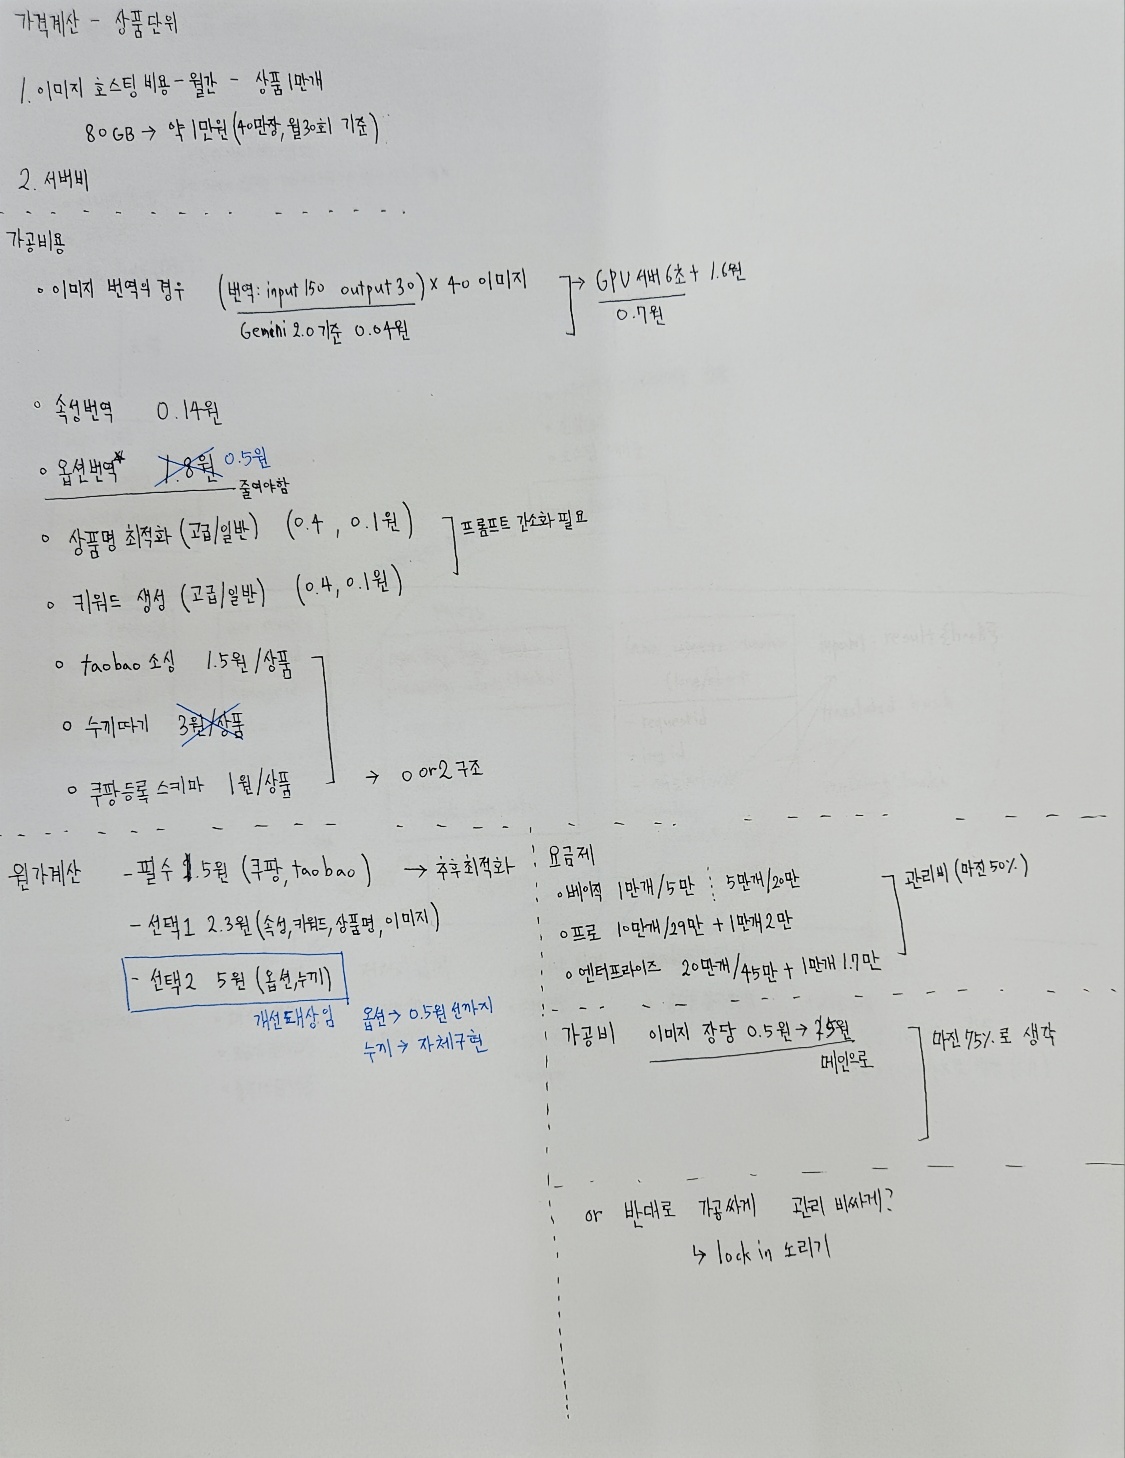 가격계산 - 상품단위
1. 이미지 호스팅 비용 - 월간 - 상품 1만개
80GB → 약 1만원 (40만장, 월30회 기준)
2. 서버비
가공비용
이미지 번역의 경우 (번역: input 150 output 30) × 40 이미지 → GPU 서버 6초 + 1.6원
Gemini 2.0 기준 0.04원
0.7원
속성번역 0.14원
옵션번역* 1.8원 0.5원
줄여야함
상품명 최적화 (고급/일반) (0.4, 0.1원)
프롬프트 간소화 필요
키워드 생성 (고급/일반) (0.4, 0.1원)
taobao 소싱 1.5원/상품
누끼따기 3원/상품
쿠팡등록 스키마 1원/상품
→ 0 or 2 구조
원가계산 - 필수 .5원 (쿠팡, taobao) → 추후최적화
- 선택1 2.3원 (속성, 키워드, 상품명, 이미지)
- 선택2 5원 (옵션, 누끼)
개선대상임 옵션 → 0.5원 선까지
누끼 → 자체구현
요금제
베이직 1만개/5만 5만개/20만
관리비 (마진 50%)
프로 10만개/29만 + 1만개 2만
엔터프라이즈 20만개/45만 + 1만개 1.7만
가공비 이미지 장당 0.5원 → 원
메인으로
마진 75%로 생각
or 반대로 가공싸게 관리 비싸게?
↳ lock in 노리기